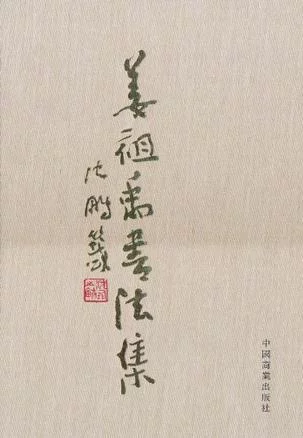 姜祖禹书法集
沈鹏签
中國商業出版社